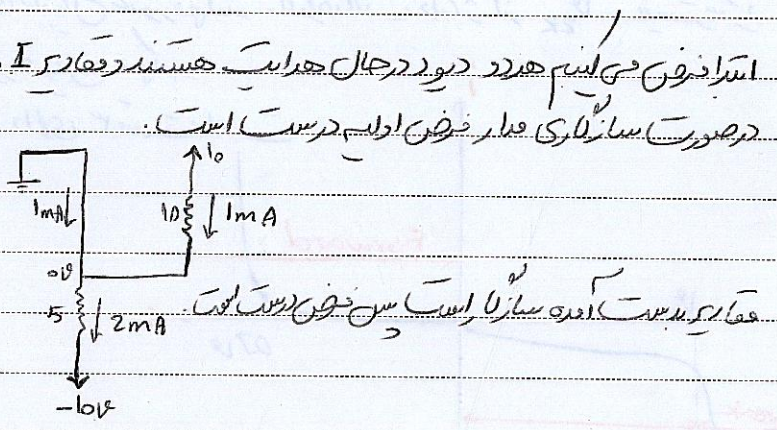 ابتدا فرض می کنیم هر دو دیود در حال هدایت هستند و مقادیر I
در صورت سازگاری مدار فرض اولیه درست است.
10
1mA
10
1mA
0v
5
2mA
-10v
مقادیر بدست آمده سازگار است پس فرض درست است.